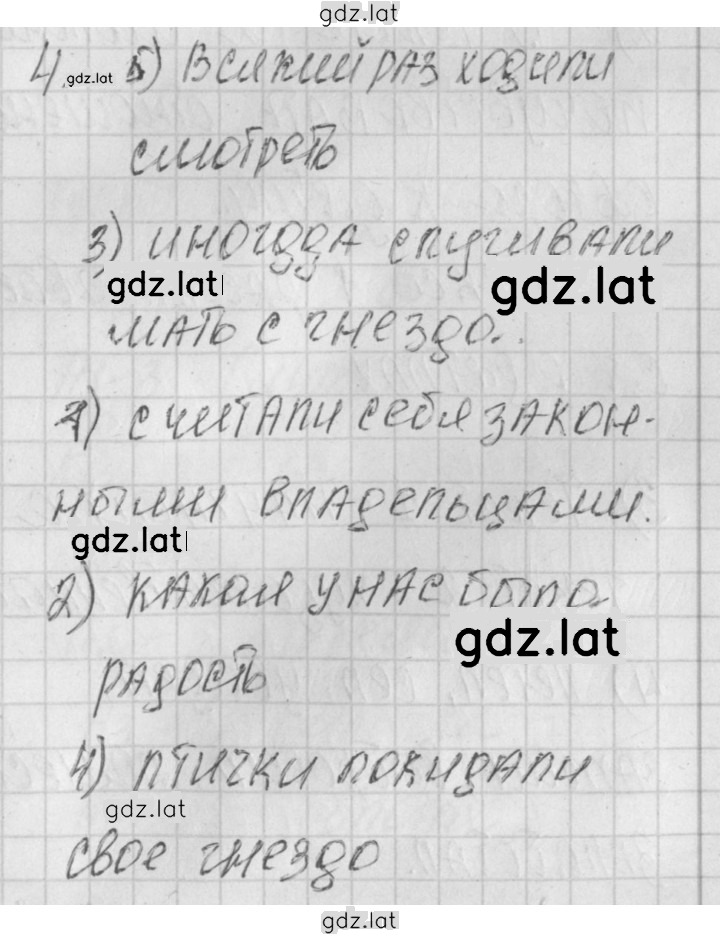 gdz.lat
4. gdz.lat 5) Всякий раз ходили
смотреть
3) иногдда спугивали
gdz.lat gdz.lat
мать с гнездо.
1) считали себя закон-
ными владельцами.
gdz.lat
2) какая у нас была
gdz.lat
радость
4) птички покидали
gdz.lat
свое гнездо
gdz.lat